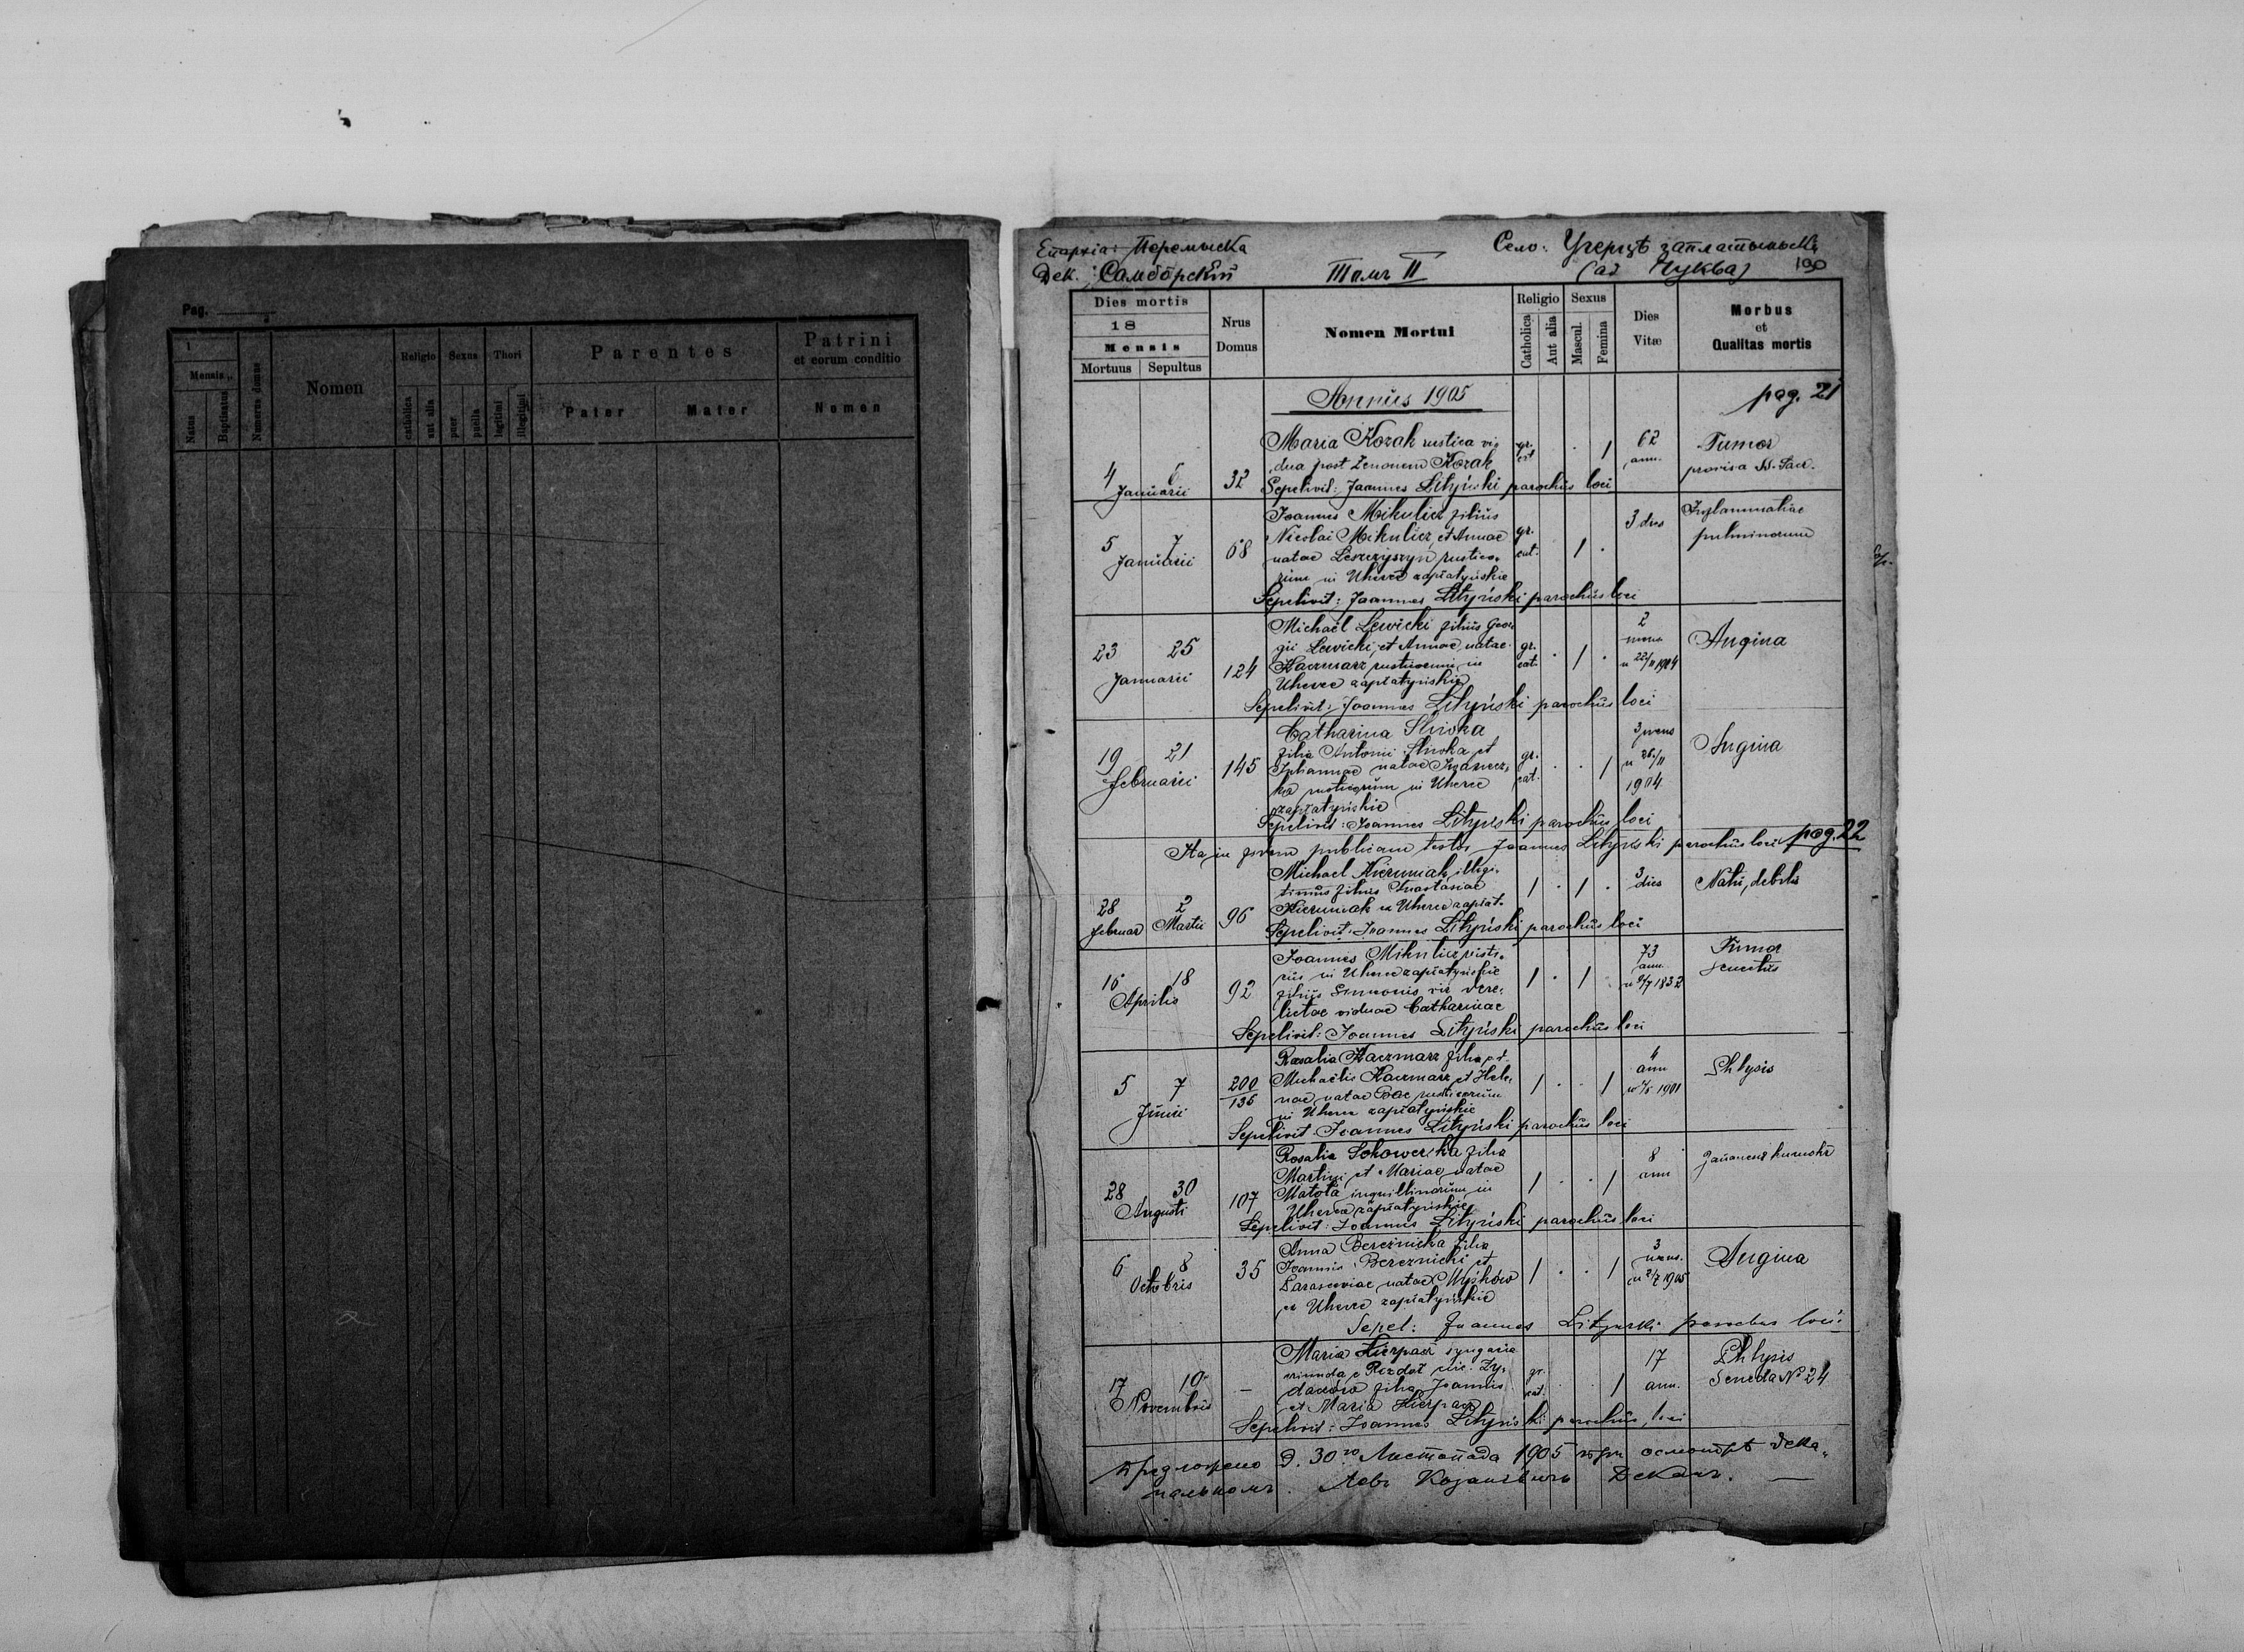 Pag.
1
Mensis
Natus
Baptisatus
Numerus domus
Nomen
Religio
catholica
aut alia
Sexus
puer
puella
Thori
legitimi
illegitimi
Parentes
Pater
Mater
Patrini
et eorum conditio
Nomen
Епархіа: Перемыска
Дек.: Самбôрскій
Томъ II
Село: Угерцѣ заплатыньскі
(ad Чуква) 190
Dies mortis
18
Mensis
Mortuus Sepultus
Nrus
Domus
Nomen Mortui
Religio
Catholica
Aut alia
Sexus
Mascul.
Femina
Dies
Vitæ
Morbus
et
Qualitas mortis
Annus 1905
pag. 21
4 6
Januarii
32
Maria Kozak rustica vi-
dua post Zenonem Kozak
Sepelivit: Joannes Lityński parochus loci
gr. cat.
1
62
ann.
Tumor
provisa SS. Sacr.
5 7
Januarii
68
Joannes Mikulicz filius
Nicolai Mikulicz, et Annae
natae Leszczyszyn rustico-
rum in Uherce zapłatyńskie
Sepelivit: Joannes Lityński parochus loci
gr. cat.
1
3 dies
Inflammatiae
pulminorum
23 25
Januarii
124
Michaël Lewicki filius Geor-
gii Lewicki, et Annae, natae
Kaczmarz rusticorum in
Uherce zapłatyńskie
Sepelivit: Joannes Lityński parochus loci
gr. cat.
1
2
mens
n 22/11 1904
Angina
19 21
Februarii
145
Catharina Sliwka
filia Antonii Sliwka et
Juliannae natae Iwanecz-
ko rusticorum in Uherce
zapłatyńskie
Sepelivit: Joannes Lityński parochus loci
gr. cat.
1
3 mens
n 26/11
1904
Angina
Ita in fidem publicam testor Joannes Lityński parochus loci
pag. 22
28 2
Februar Martii
96
Michael Kierniak, illegi-
timus filius Anastasiae
Kierniak in Uherce zapłat.
Sepelivit: Joannes Lityński parochus loci
1 1
3
dies
Nativ, debilis
16 18
Aprilis
92
Joannes Mikulicz rusti-
cus in Uherce zapłatyńskie
filius Simeonis vir dere-
lictae viduae Catharinae
Sepelivit: Joannes Lityński parochus loci
1 1
73
ann.
1832
Tumor
senectus
5 7
Junii
200
136
Rosalia Kaczmarz filia
Michaëlis Kaczmarz et Hele-
nae, natae Bac rusticorum
in Uherce zapłatyńskie
Sepelivit Joannes Lityński parochus loci
1 1
4
ann
1901
Phtysis
28 30
Augusti
107
Rosalia Sokowerska filia
Martini et Mariae natae
Matoła inquillinorum in
Uherce zapłatyńskie
Sepelivit: Joannes Lityński parochus loci
1 1
8
ann
6 8
Octobris
35
Anna Bereznicka filia
Joannis Bereznicki et
Parasceviae natae Myśków
in Uherce zapłatyńskie
Sepel: Joannes Lityński parochus loci
1 1
3
mens.
n 2/7 1905
Angina
17 19
Novembris
—
Maria Kierpacz
oriunda e Rozdoł
filia Joannis
et Maria Kierpacz
Sepelivit: Joannes Lityński parochus loci
gr. cat.
1
17
ann.
Phtysis
Scheda No 24
Предложено д. 30го Листопада 1905 при осмотрѣ дека-
нальномъ. Левъ Козаневичъ Деканъ. —